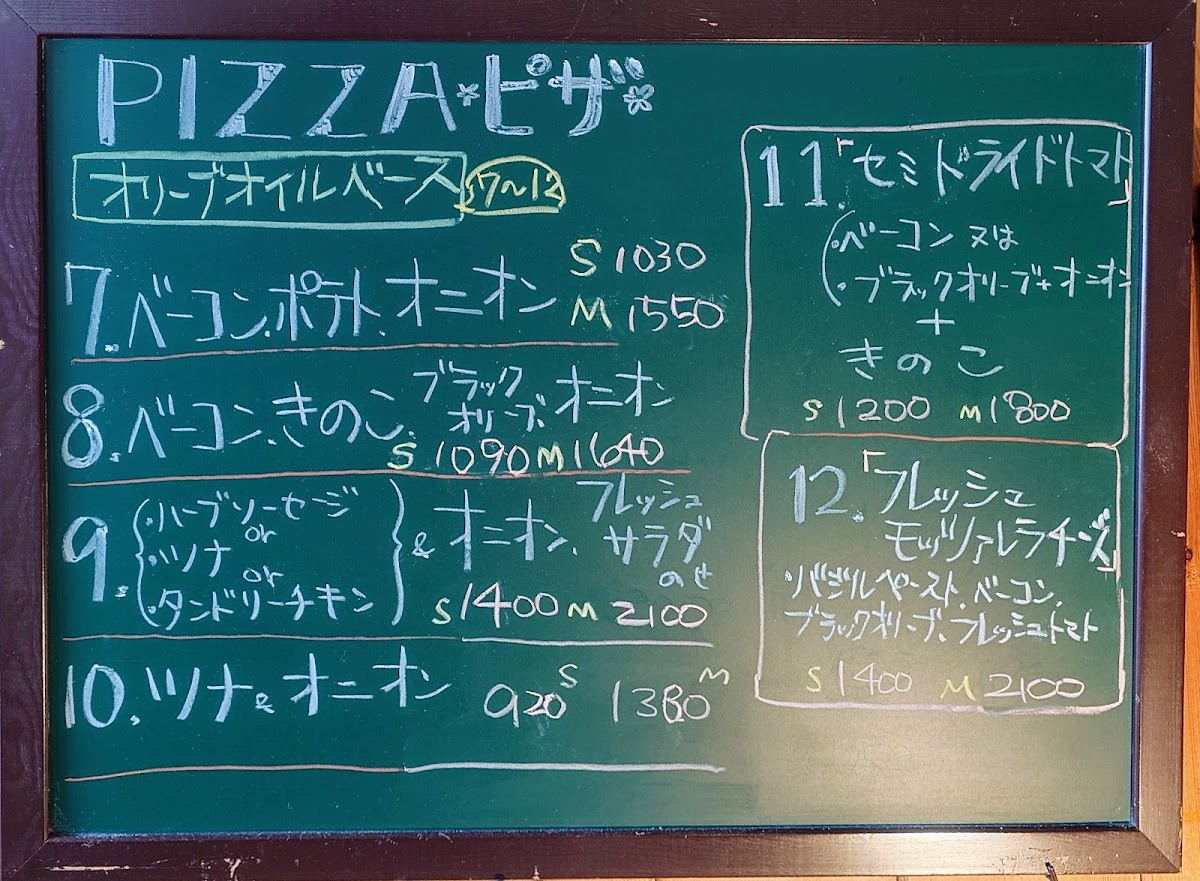 PIZZA*ピザ*
オリーブオイルベース 7〜12
7.ベーコン.ポテト.オニオン S 1030
M 1550
8.ベーコン.きのこ.ブラックオリーブ.オニオン
S 1090 M 1640
9.
・ハーブソーセージ
or
・ツナ
or
・タンドリーチキン
& オニオン.フレッシュサラダのせ
S 1400 M 2100
10.ツナ&オニオン 920 S 1380 M
11.「セミドライドトマト」
・ベーコン 又は
・ブラックオリーブ+オニオン
+
きのこ
S 1200 M 1800
12.「フレッシュ
モッツァレラチーズ」
・バジルペースト.ベーコン.
ブラックオリーブ.フレッシュトマト
S 1400 M 2100